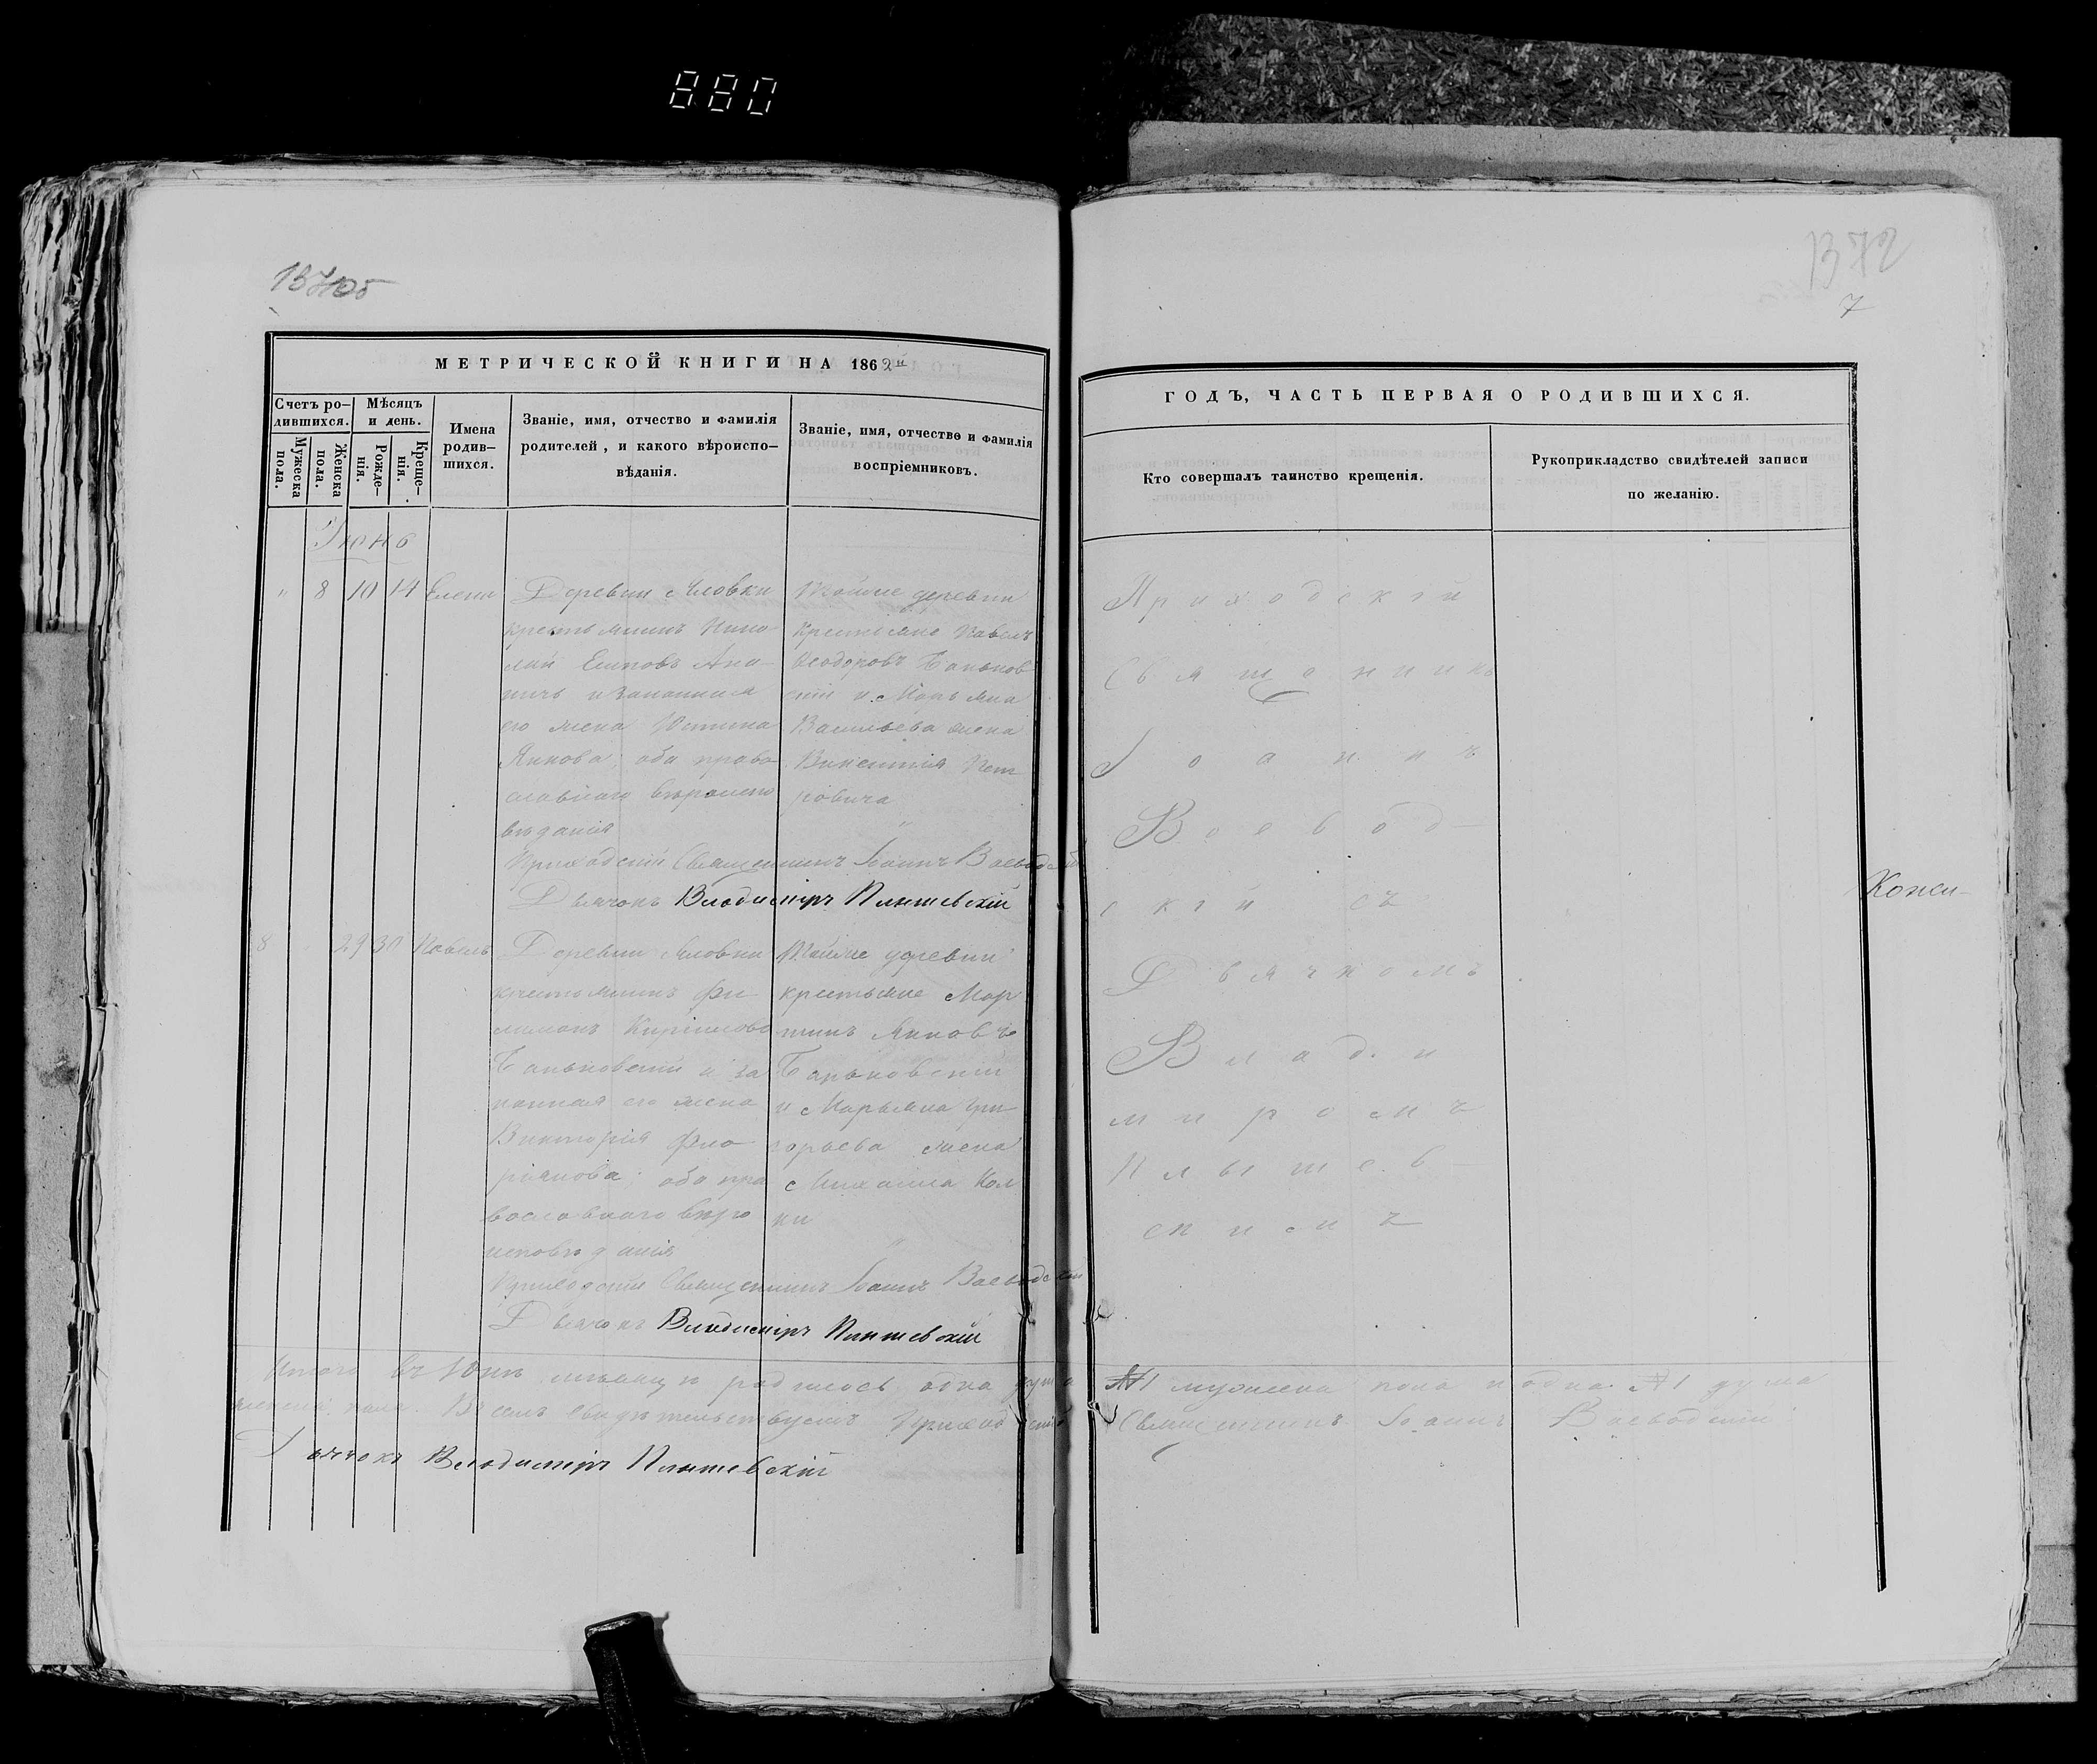 880
1372
7
МЕТРИЧЕСКОЙ КНИГИ НА 1862й
Счетъ ро-
дившихся.
Мужеска
пола.
Женска
пола.
Мѣсяцъ
и день.
Рожде-
нія.
Креще-
нія.
Имена
родив-
шихся.
Званіе, имя, отчество и фамилія
родителей, и какого вѣроиспо-
вѣданія.
Званіе, имя, отчество и фамилія
воспріемниковъ.
Іюнь
" 8 10 14 Елена
Деревни
крестьянинъ
его жена Юстина
Янкова; оба право
славнаго вѣроиспо
вѣданія
Тойже деревни
крестьяне Павелъ
Ѳеодоровъ Баньков
скій и Марьяна
Васильева жена
Викентія Пет
ровича
Приходскій Священникъ Іоаннъ Воеводскій
Дьячокъ Владиміръ Плышевскій
8 29 30 Павелъ
Деревни
крестьянинъ Фи
лимонъ Кириловъ
Баньковскій и за
конная его жена
Викторія Фло
ріанова; оба пра
вославнаго вѣро
исповѣданія
Тойже деревни
крестьяне Мар
тинъ Янковъ
Баньковскій
и Марьяна Гри
горьева жена
Михаила Кол
ки
Приходскій Священникъ Іоаннъ Воеводскій
Дьячокъ Владиміръ Плышевскій
Итого въ Юнѣ мѣсяцѣ родилось одна душа
женска пола. В семъ свидѣтельствуемъ Приходскій
Дьячокъ Владиміръ Плышевскій
ГОДЪ, ЧАСТЬ ПЕРВАЯ О РОДИВШИХСЯ.
Кто совершалъ таинство крещенія.
Рукоприкладство свидѣтелей записи
по желанію.
Приходскій
Священникъ
Іоаннъ
Воевод-
скій съ
Дьячкомъ
Влади
миромъ
Плышев-
скимъ
1 мужеска пола и одна 1 душа
Священникъ Іоаннъ Воеводскій